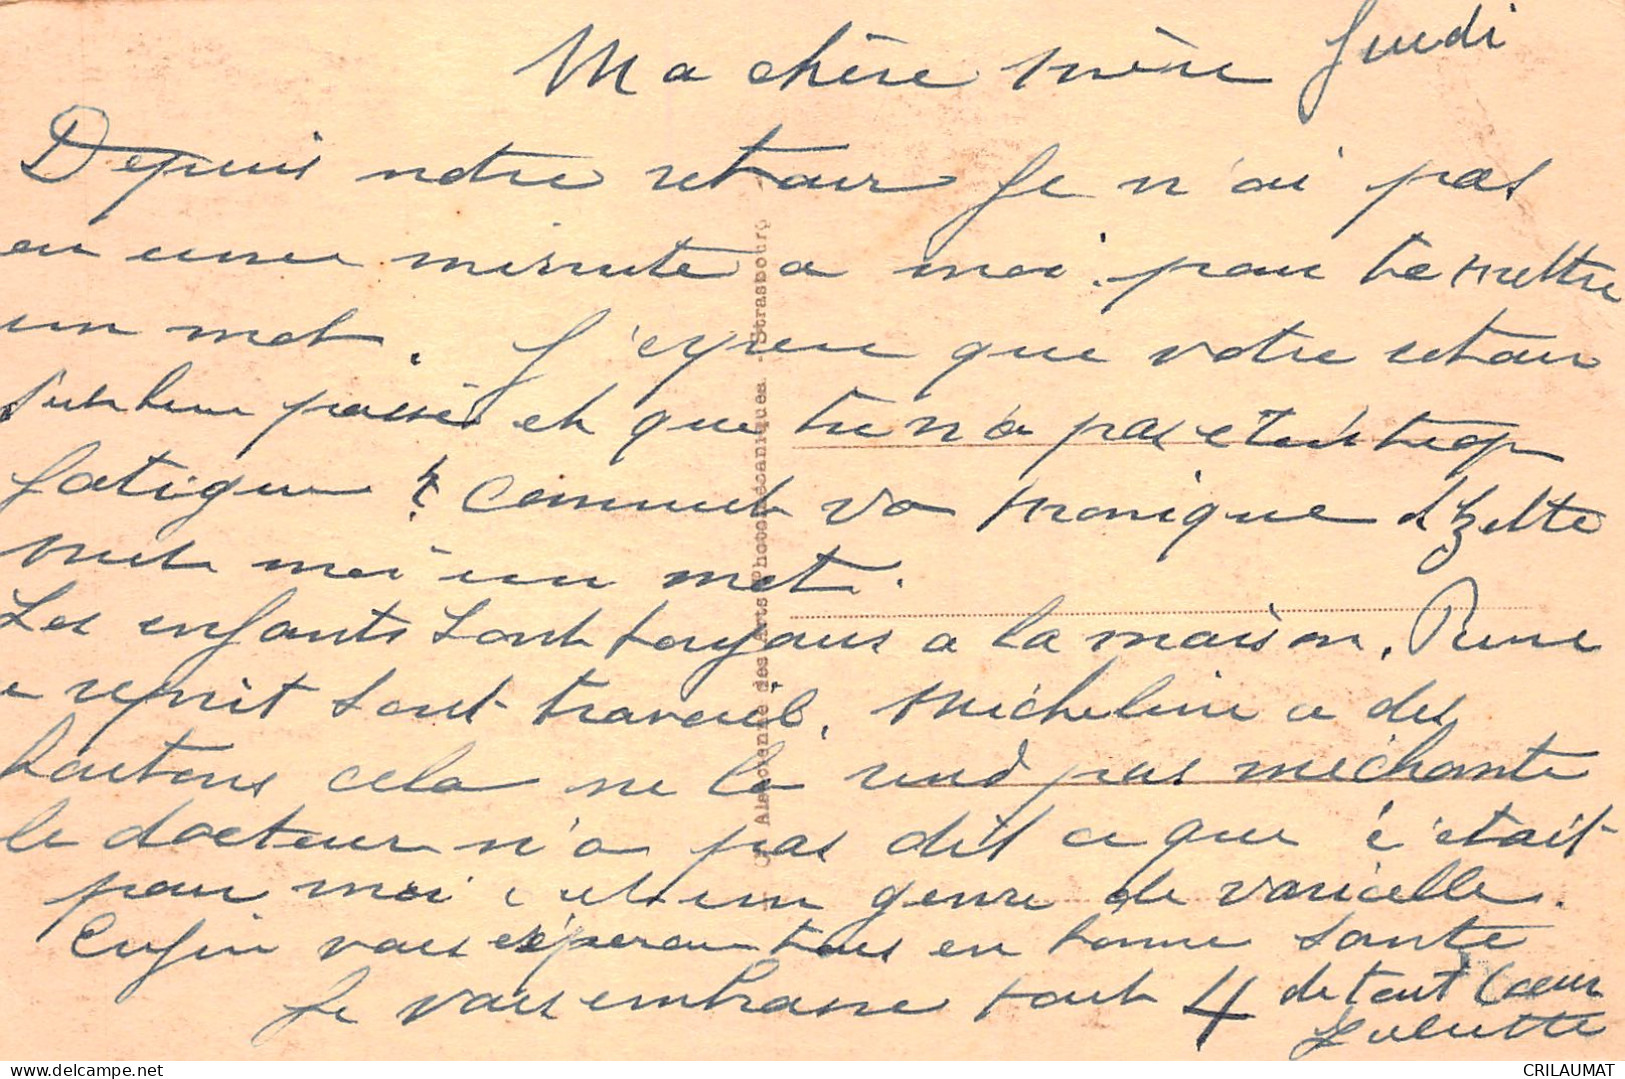 Jeudi
Ma chère mère
Depuis notre retour Je n'ai pas
eu une minute a moi pour te mettre
un mot. J'espere que votre retour
s'est bien passé et que tu n'a pas etais trop
fatigue ? Comment va Monique
met moi un mot.
Les enfants sont toujours a la maison. Rene
a reprit sont travail. Micheline a des
boutons cela ne la rend pas méchante
le docteur n'a pas dit ce que c'était
pour moi c'est un genre de varicelle.
Enfin vous espérons tous en bonne Sante
Je vous embrasse tout 4 de tout Coeur
Juliette
Alsacienne des Arts Photomécaniques. - Strasbourg
delcampe.net
CRILAUMAT